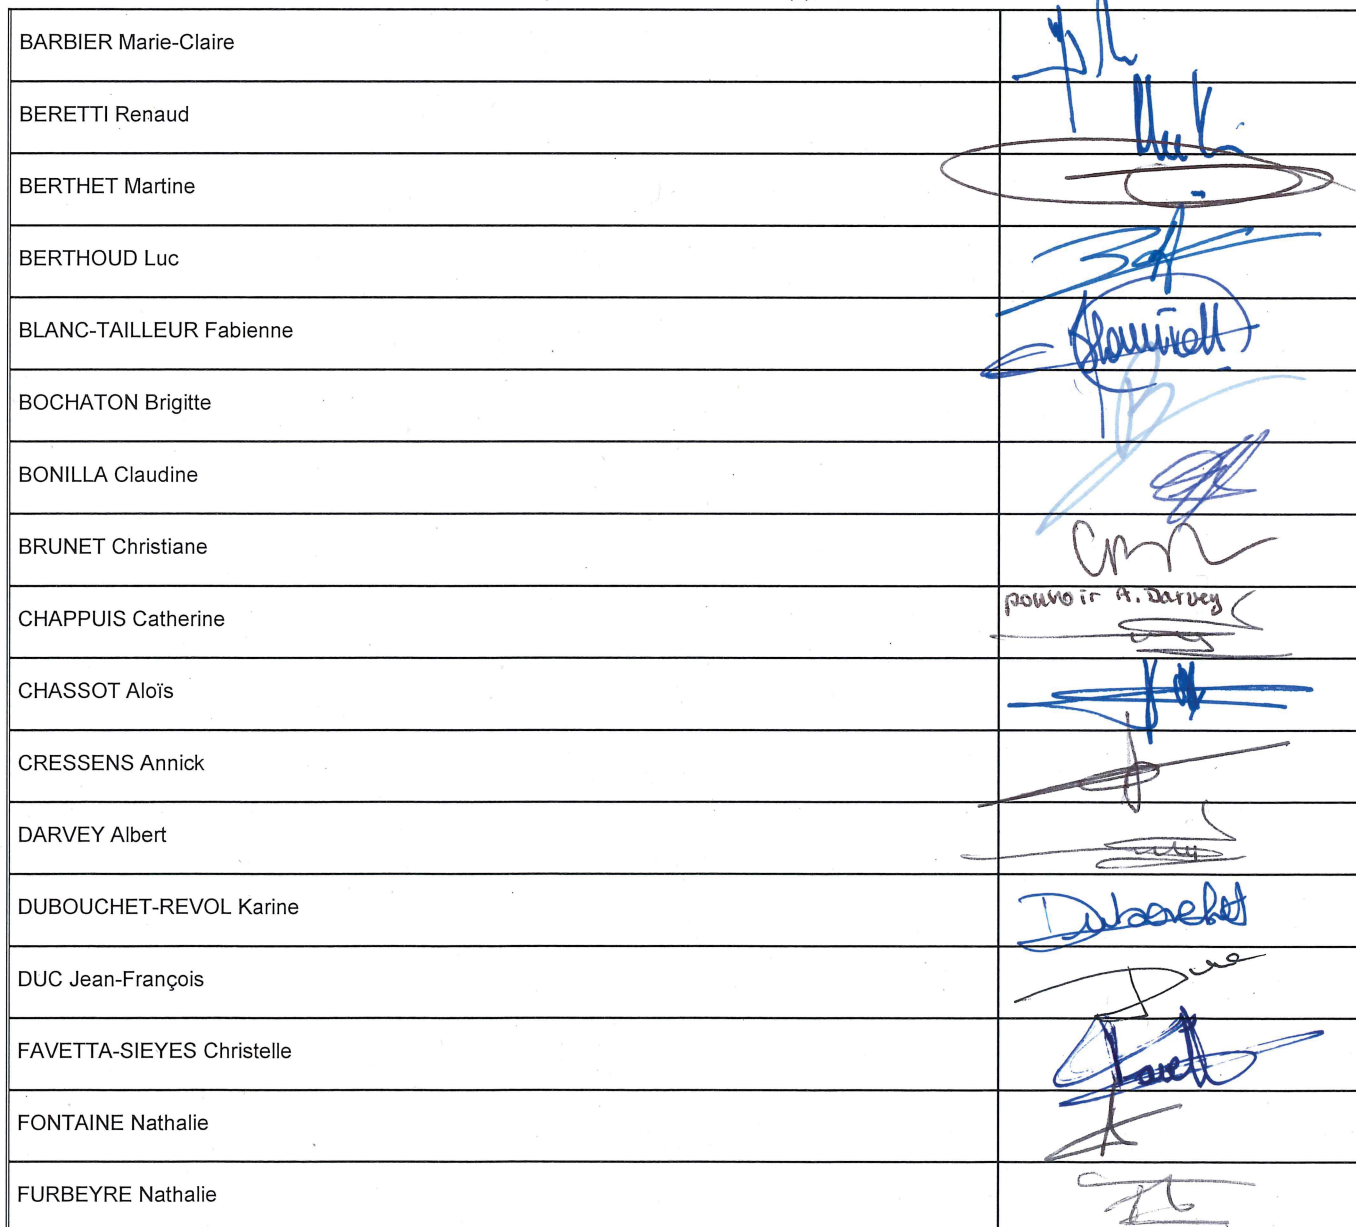 BARBIER Marie-Claire
BERETTI Renaud
BERTHET Martine
BERTHOUD Luc
BLANC-TAILLEUR Fabienne
BOCHATON Brigitte
BONILLA Claudine
BRUNET Christiane
CHAPPUIS Catherine
pouvoir A. Darvey
CHASSOT Aloïs
CRESSENS Annick
DARVEY Albert
DUBOUCHET-REVOL Karine
Dubouchet
DUC Jean-François
Duc
FAVETTA-SIEYES Christelle
FONTAINE Nathalie
FURBEYRE Nathalie